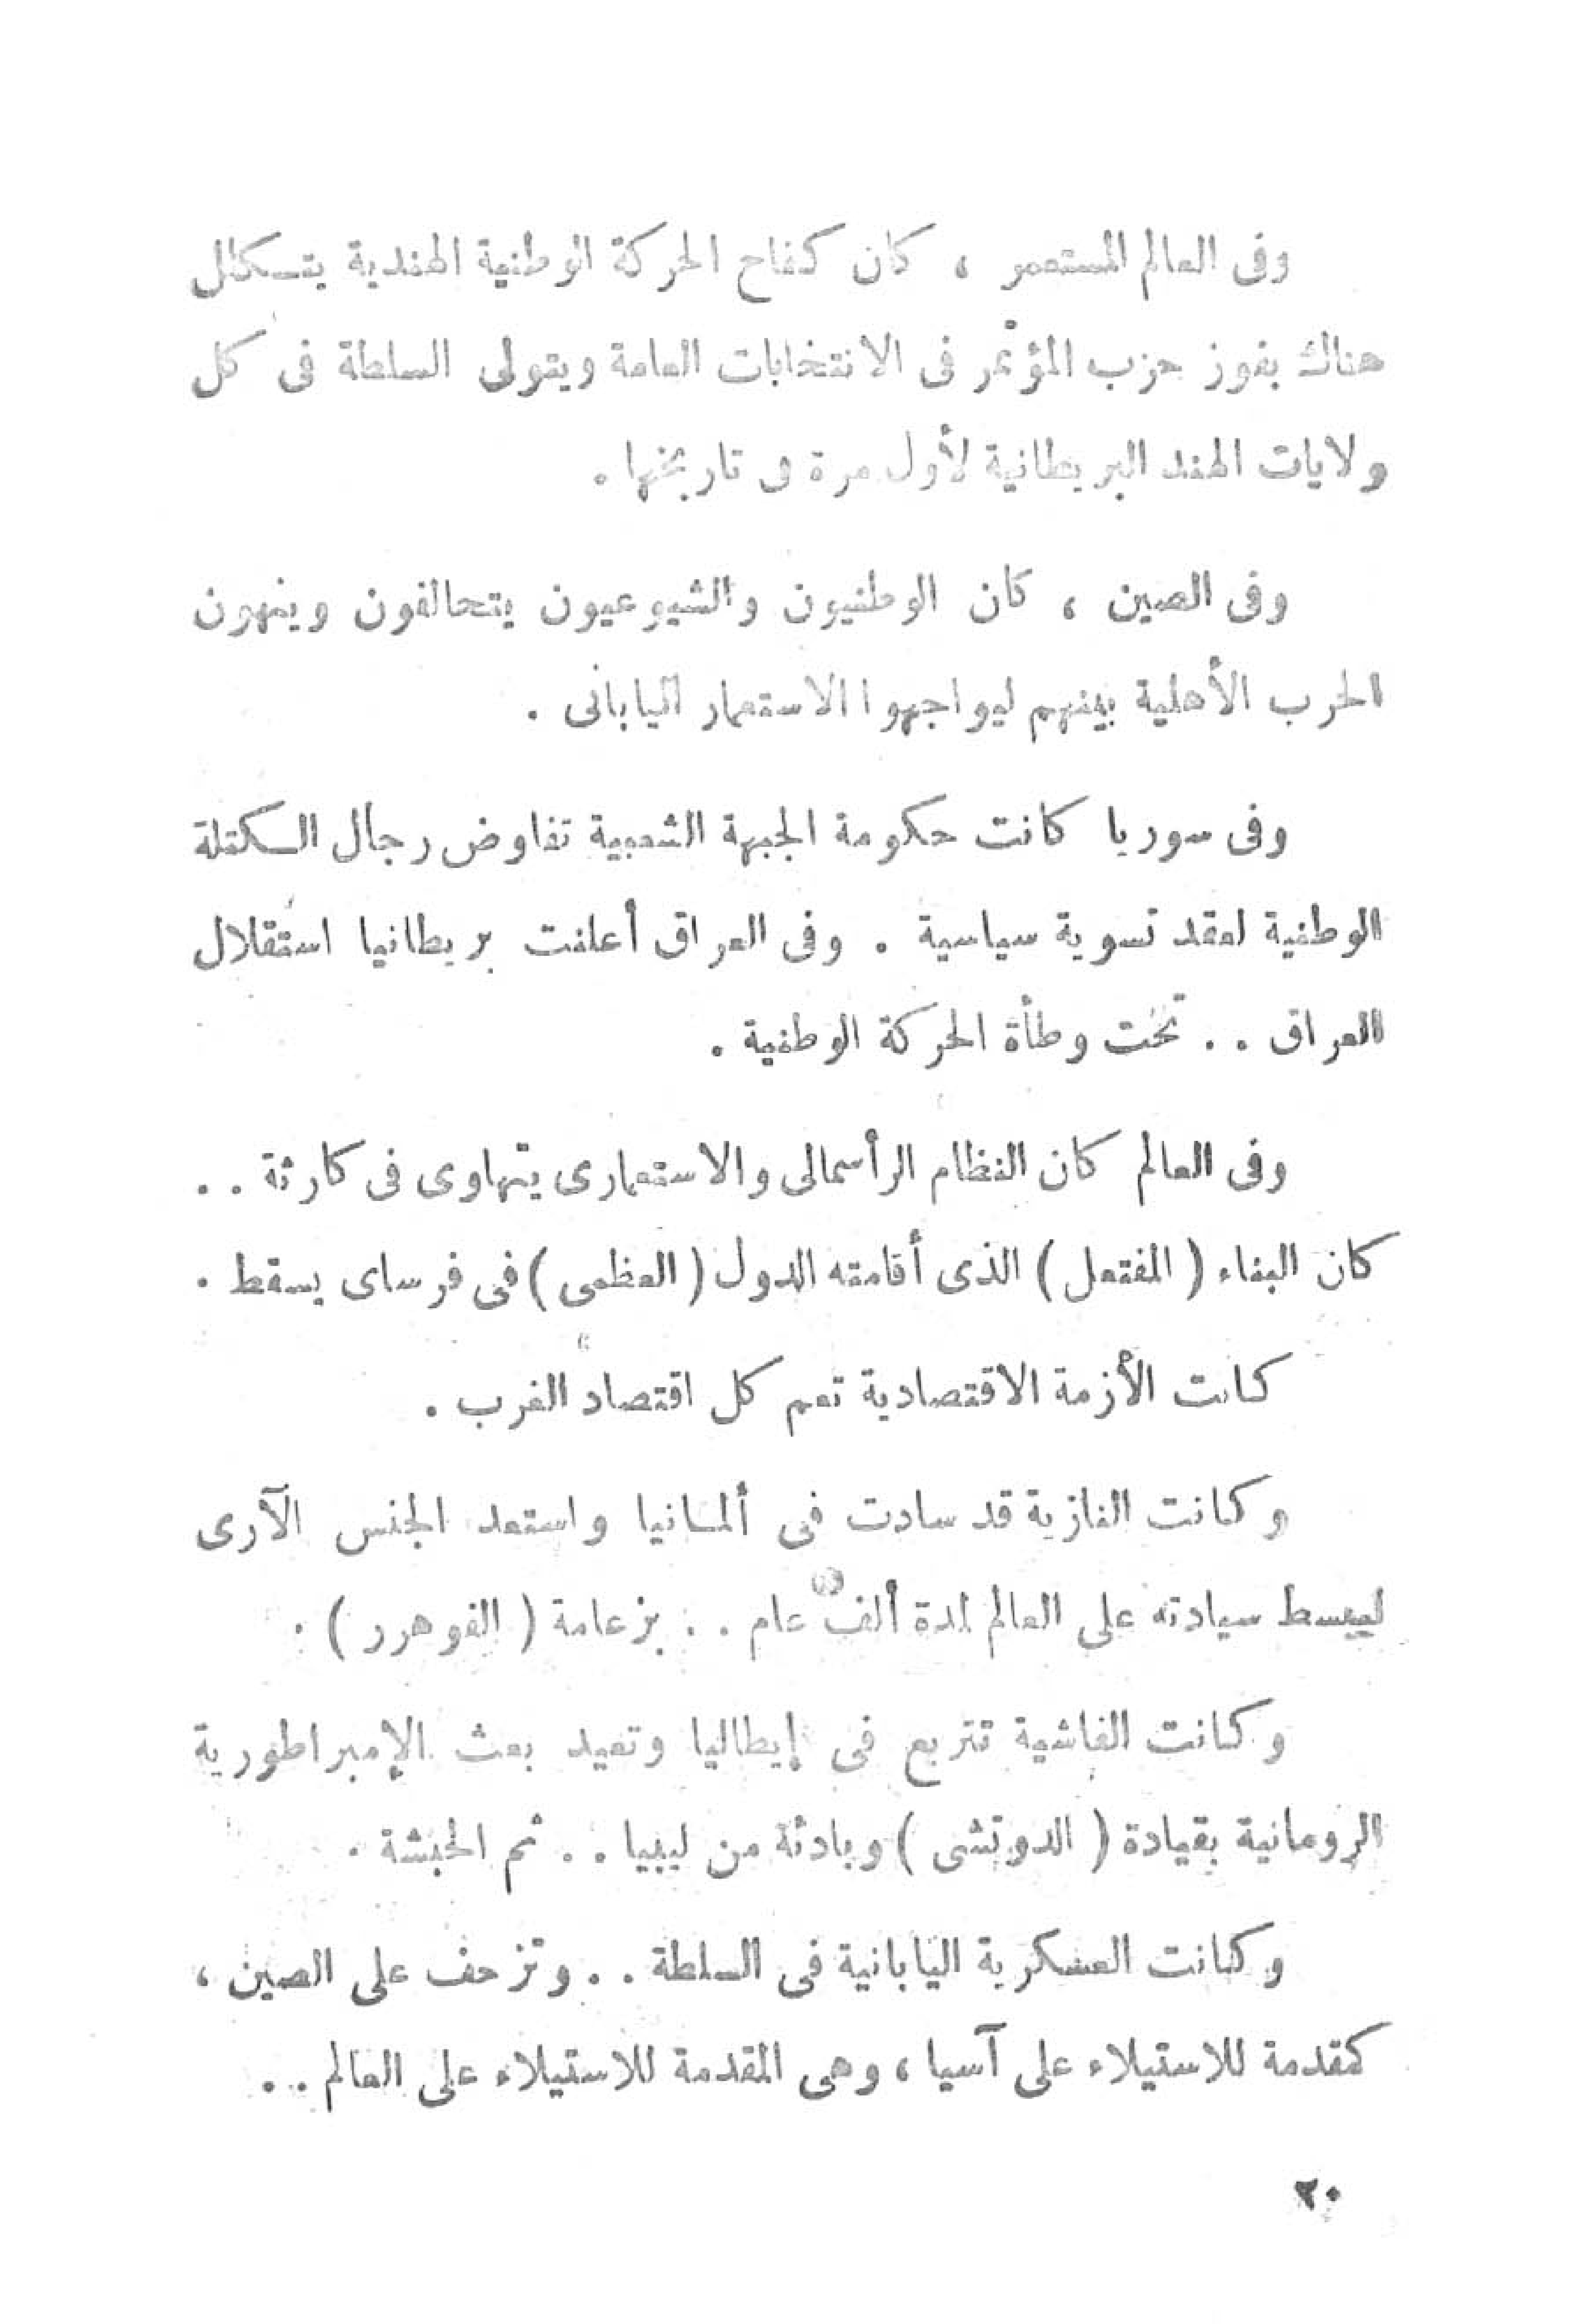 وفى العالم المستعمر ، كان كفاح الحركة الوطنية الهندية يتكلل
هناك بفوز حزب المؤتمر فى الانتخابات العامة ويتولى السلطة فى كل
ولايات الهند البريطانية لأول مرة فى تاريخها .
وفى الصين ، كان الوطنيون والشيوعيون يتحالفون وينهون
الحرب الأهلية بينهم ليواجهوا الاستعمار اليابانى .
وفى سوريا كانت حكومة الجبهة الشعبية تفاوض رجال الكتلة
الوطنية لعقد تسوية سياسية . وفى العراق أعلنت بريطانيا استقلال
العراق . . تحت وطأة الحركة الوطنية .
وفى العالم كان النظام الرأسمالى والاستعمارى يتهاوى فى كارثة . .
كان البناء ( المفتعل ) الذى أقامته الدول ( العظمى ) فى فرساى يسقط .
كانت الأزمة الاقتصادية تعم كل اقتصاد الغرب .
وكانت النازية قد سادت فى ألمانيا واستعد الجنس الآرى
ليبسط سيادته على العالم لمدة ألف عام . . بزعامة ( الفوهرر ) .
وكانت الفاشية تتربع فى إيطاليا وتعيد بعث الإمبراطورية
الرومانية بقيادة ( الدوتشى ) وبادئة من ليبيا . . ثم الحبشة .
وكانت العسكرية اليابانية فى السلطة . . وتزحف على الصين ،
كمقدمة للاستيلاء على آسيا ، وهى المقدمة للاستيلاء على العالم . .
٢٠